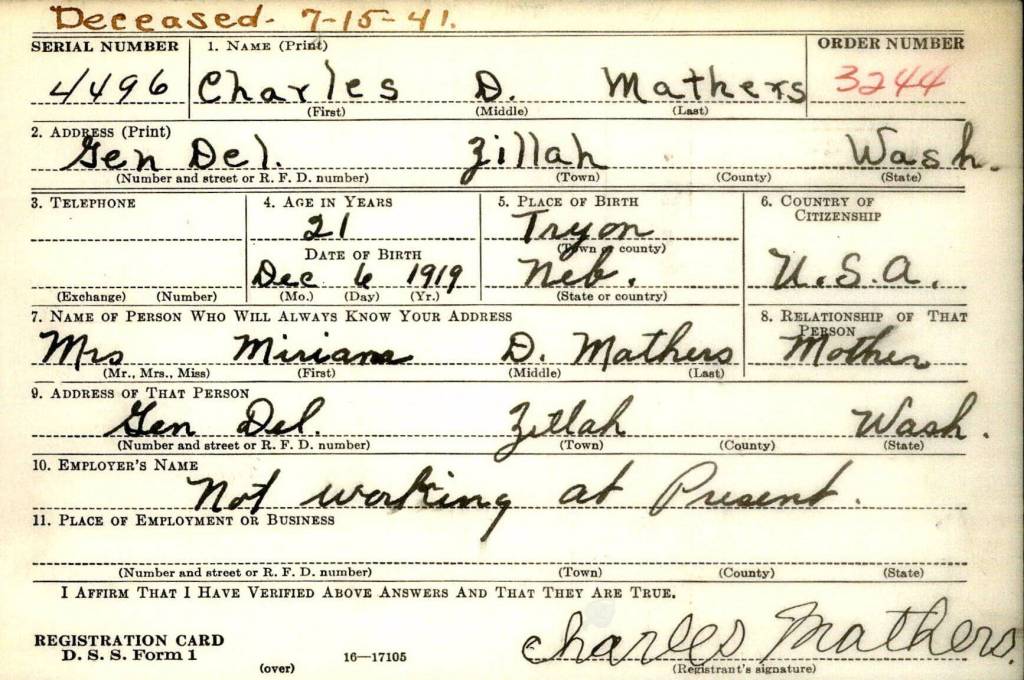 Deceased- 7-15-41.
SERIAL NUMBER 1. NAME (Print) ORDER NUMBER
4496 Charles D. Mathers 3244
(First) (Middle) (Last)
2. ADDRESS (Print)
Gen Del. Zillah Wash.
(Number and street or R. F. D. number) (Town) (County) (State)
3. TELEPHONE 4. AGE IN YEARS 5. PLACE OF BIRTH 6. COUNTRY OF CITIZENSHIP
21 Tryon
DATE OF BIRTH (Town or county)
Dec 6 1919 Neb. U.S.A.
(Exchange) (Number) (Mo.) (Day) (Yr.) (State or country)
7. NAME OF PERSON WHO WILL ALWAYS KNOW YOUR ADDRESS 8. RELATIONSHIP OF THAT PERSON
Mrs Miriam D. Mathers Mother
(Mr., Mrs., Miss) (First) (Middle) (Last)
9. ADDRESS OF THAT PERSON
Gen Del. Zillah Wash.
(Number and street or R. F. D. number) (Town) (County) (State)
10. EMPLOYER'S NAME
Not working at Present.
11. PLACE OF EMPLOYMENT OR BUSINESS
(Number and street or R. F. D. number) (Town) (County) (State)
I AFFIRM THAT I HAVE VERIFIED ABOVE ANSWERS AND THAT THEY ARE TRUE.
REGISTRATION CARD Charles Mathers.
D. S. S. Form 1 (over) 16—17105 (Registrant's signature)